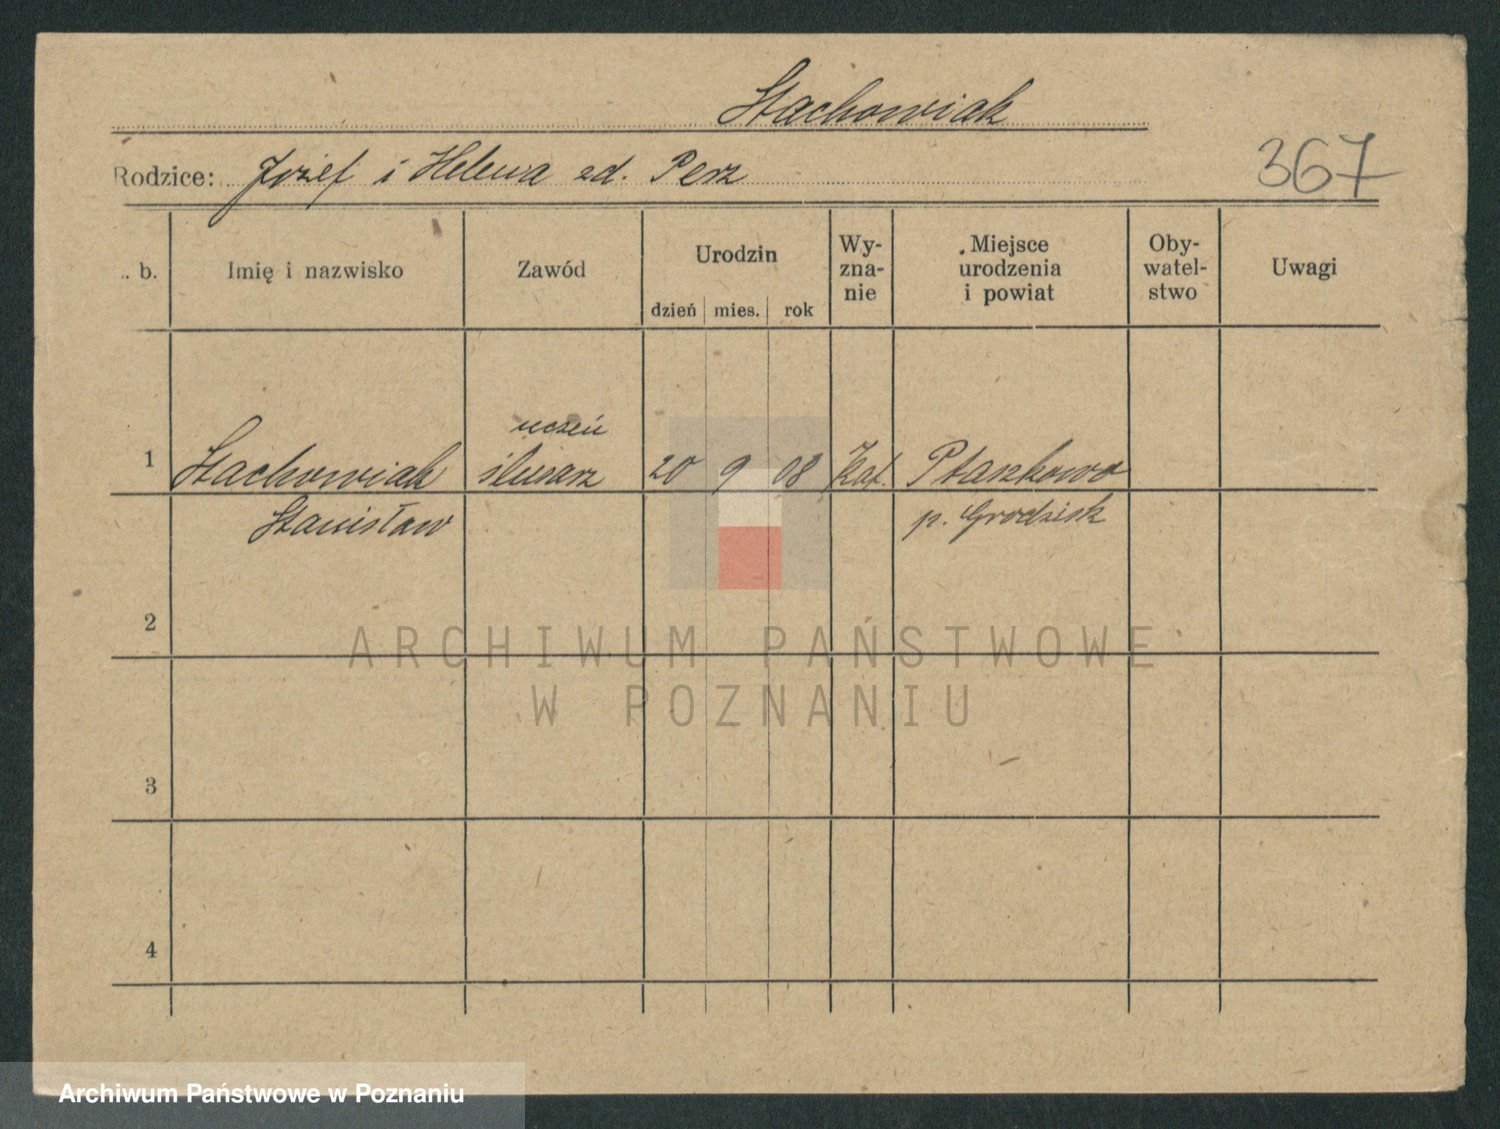 Stachowiak
Rodzice: Józef i Helena zd. Perz
367
. b. Imię i nazwisko Zawód Urodzin Wy- Miejsce Oby- Uwagi
zna- urodzenia watel-
dzień mies. rok nie i powiat stwo
uczeń
1 Stachowiak ślusarz 20 9 08 Kat. Ptaszkowo
Stanisław p. Grodzisk
2
ARCHIWUM PAŃSTWOWE
W POZNANIU
3
4
Archiwum Państwowe w Poznaniu